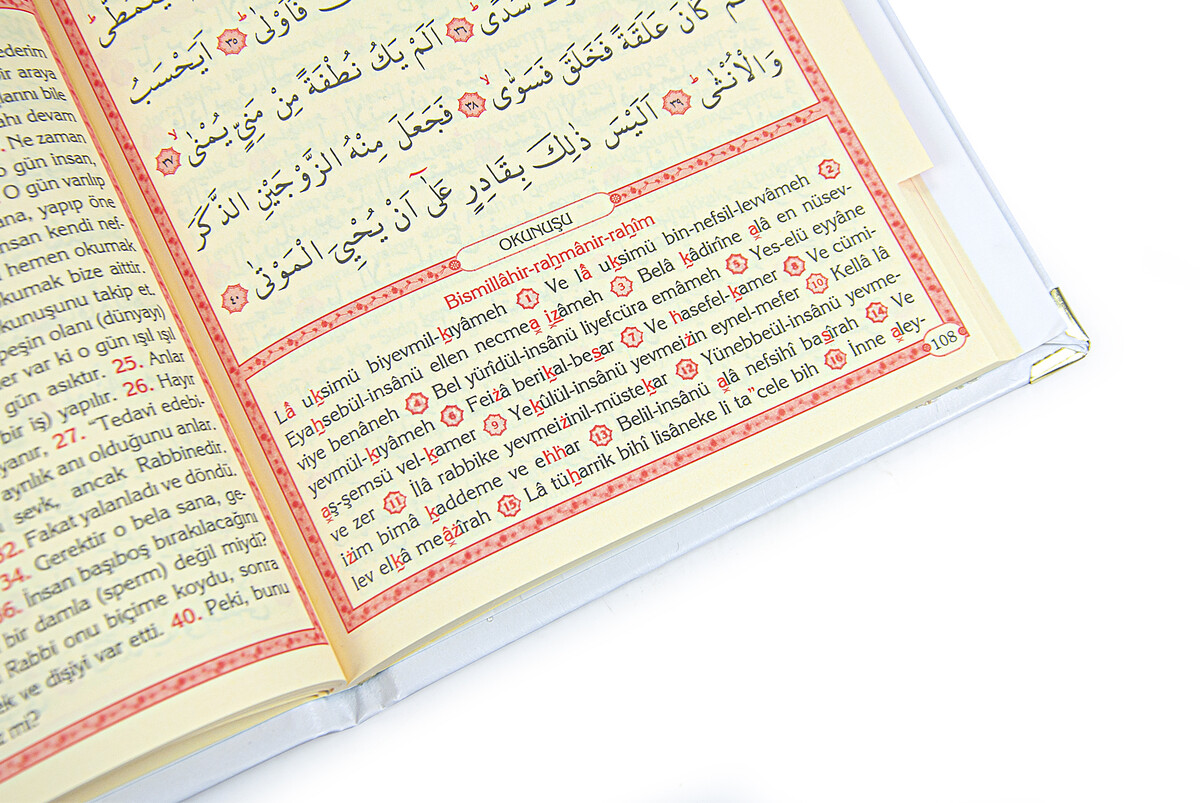 ederim
bir araya
larını bile
ahı devam
. Ne zaman
o gün insan,
O gün varılıp
ana, yapıp öne
insan kendi nef-
hemen okumak
kumak bize aittir.
kunuşunu takip et.
peşin olanı (dünyayı)
er var ki o gün ışıl ışıl
gün asıktır. 25. Anlar
bir iş) yapılır. 26. Hayır
yanır, 27. “Tedavi edebi-
ayrılık anı olduğunu anlar.
sevk, ancak Rabbinedir.
32. Fakat yalanladı ve döndü.
34. Gerektir o bela sana, ge-
36. İnsan başıboş bırakılacağını
bir damla (sperm) değil miydi?
Rabbi onu biçime koydu, sonra
ek ve dişiyi var etti. 40. Peki, bunu
mi?
فَاَوْلٰىۜ ﴿٣٥﴾ اَيَحْسَبُ
سُدًىۜ ﴿٣٦﴾ اَلَمْ يَكُ نُطْفَةً مِنْ مَنِيٍّ يُمْنٰىۙ ﴿٣٧﴾
كَانَ عَلَقَةً فَخَلَقَ فَسَوّٰىۙ ﴿٣٨﴾ فَجَعَلَ مِنْهُ الزَّوْجَيْنِ الذَّكَرَ
وَالْاُنْثٰىۜ ﴿٣٩﴾ اَلَيْسَ ذٰلِكَ بِقَادِرٍ عَلٰٓى اَنْ يُحْيِيَ الْمَوْتٰى ﴿٤٠﴾
OKUNUŞU
Bismillâhir-raḥmânir-raḥîm
Lâ uḳsimü biyevmil-ḳıyâmeh 1 Ve lâ uḳsimü bin-nefsil-levvâmeh 2
Eyaḥsebül-insânü ellen necmea izâmeh 3 Belâ ḳâdirîne alâ en nüsev-
viye benâneh 4 Bel yürîdül-insânü liyefcüra emâmeh 5 Yes-elü eyyâne
yevmül-ḳıyâmeh 6 Feiżâ beriḳal-beṣar 7 Ve ḣasefel-ḳamer 8 Ve cümi-
aş-şemsü vel-ḳamer 9 Yeḳûlül-insânü yevmeiżin eynel-mefer 10 Kellâ lâ
ve zer 11 İlâ rabbike yevmeiżinil-müsteḳar 12 Yünebbeül-insânü yevme-
iżim bimâ ḳaddeme ve eḣḣar 13 Belil-insânü alâ nefsihî baṣîrah 14 Ve
lev elḳâ meâżîrah 15 Lâ tüḥarrik bihî lisâneke li ta”cele bih 16 İnne aley-
108